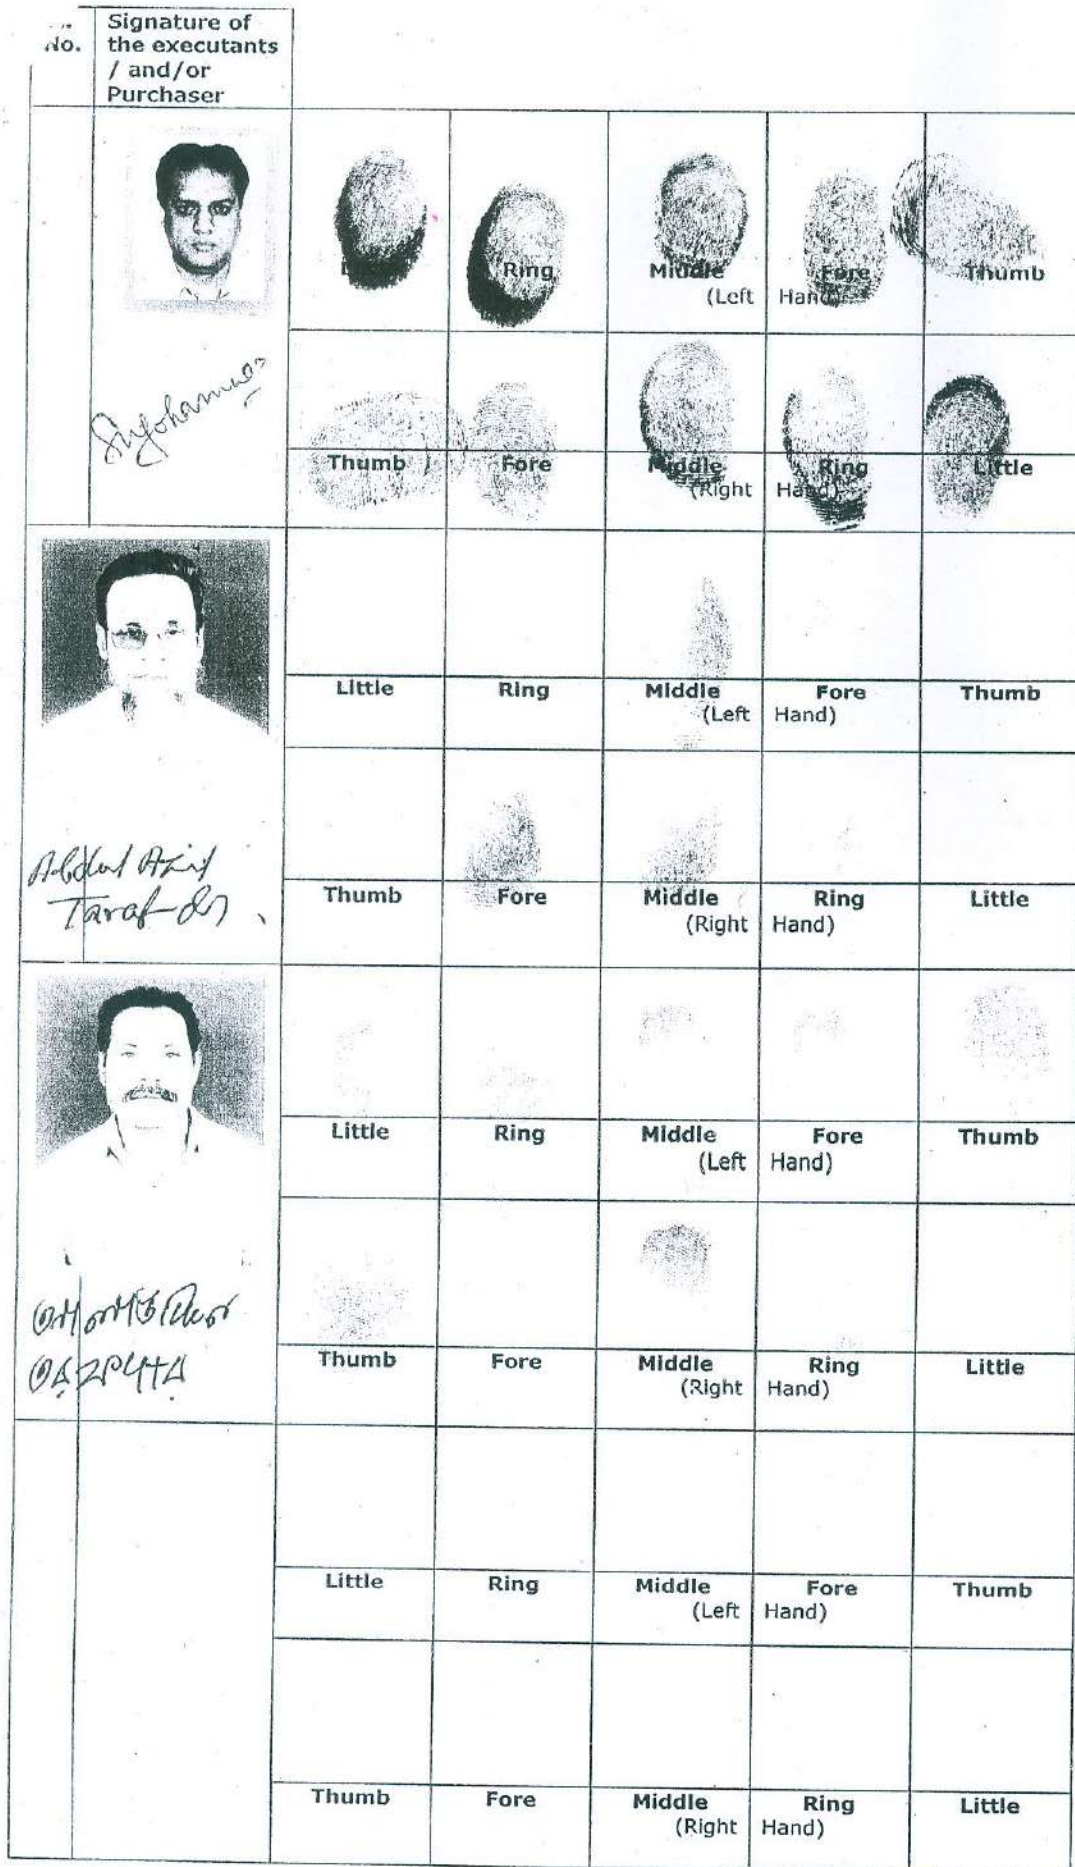 No.
Signature of
the executants
/ and/or
Purchaser
Ring
Middle
Fore
Thumb
(Left Hand)
Thumb
Fore
Middle
Ring
Little
(Right Hand)
Little
Ring
Middle
Fore
Thumb
(Left Hand)
Abdul Aziz
Tarafdar
Thumb
Fore
Middle
Ring
Little
(Right Hand)
Little
Ring
Middle
Fore
Thumb
(Left Hand)
Thumb
Fore
Middle
Ring
Little
(Right Hand)
Little
Ring
Middle
Fore
Thumb
(Left Hand)
Thumb
Fore
Middle
Ring
Little
(Right Hand)